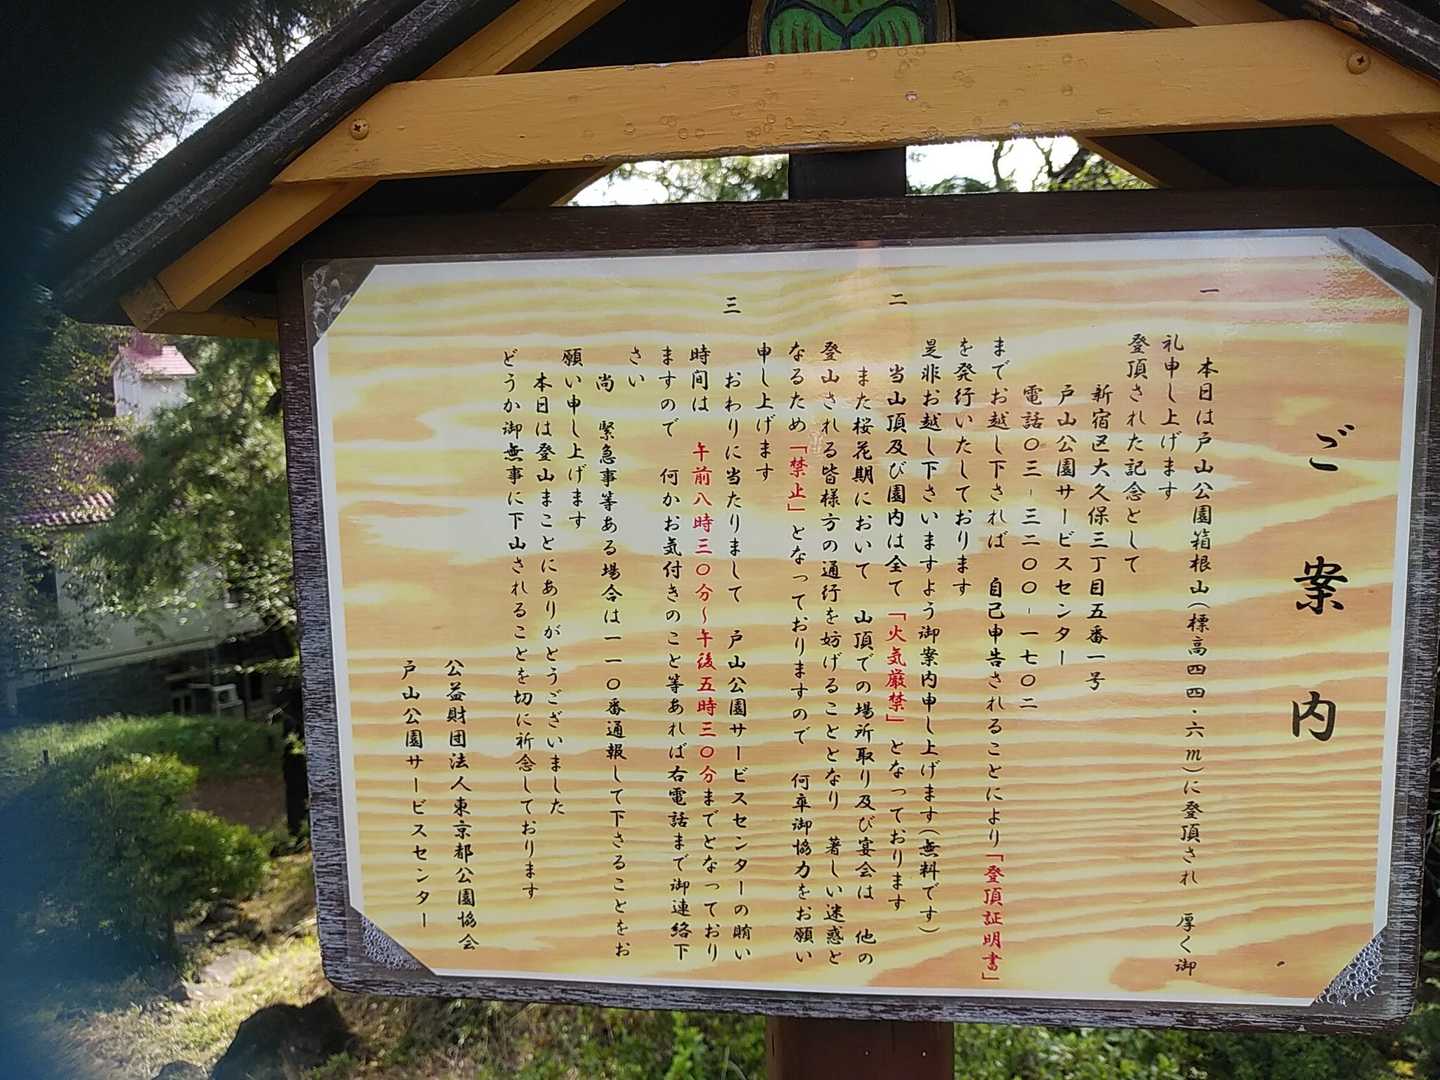 ご案内
一
本日は戸山公園箱根山(標高四四・六m)に登頂され 厚く御
礼申し上げます
登頂された記念として
新宿区大久保三丁目五番一号
戸山公園サービスセンター
電話〇三-三二〇〇-一七〇二
までお越し下されば 自己申告されることにより「登頂証明書」
を発行いたしております
是非お越し下さいますよう御案内申し上げます(無料です)
二
当山頂及び園内は全て「火気厳禁」となっております
また桜花期において 山頂での場所取り及び宴会は 他の
登山される皆様方の通行を妨げることとなり 著しい迷惑と
なるため「禁止」となっておりますので 何卒御協力をお願い
申し上げます
三
おわりに当たりまして 戸山公園サービスセンターの賄い
時間は 午前八時三〇分～午後五時三〇分までとなっており
ますので 何かお気付きのこと等あれば右電話まで御連絡下
さい
尚 緊急事等ある場合は一一〇番通報して下さることをお
願い申し上げます
本日は登山まことにありがとうございました
どうか御無事に下山されることを切に祈念しております
公益財団法人東京都公園協会
戸山公園サービスセンター